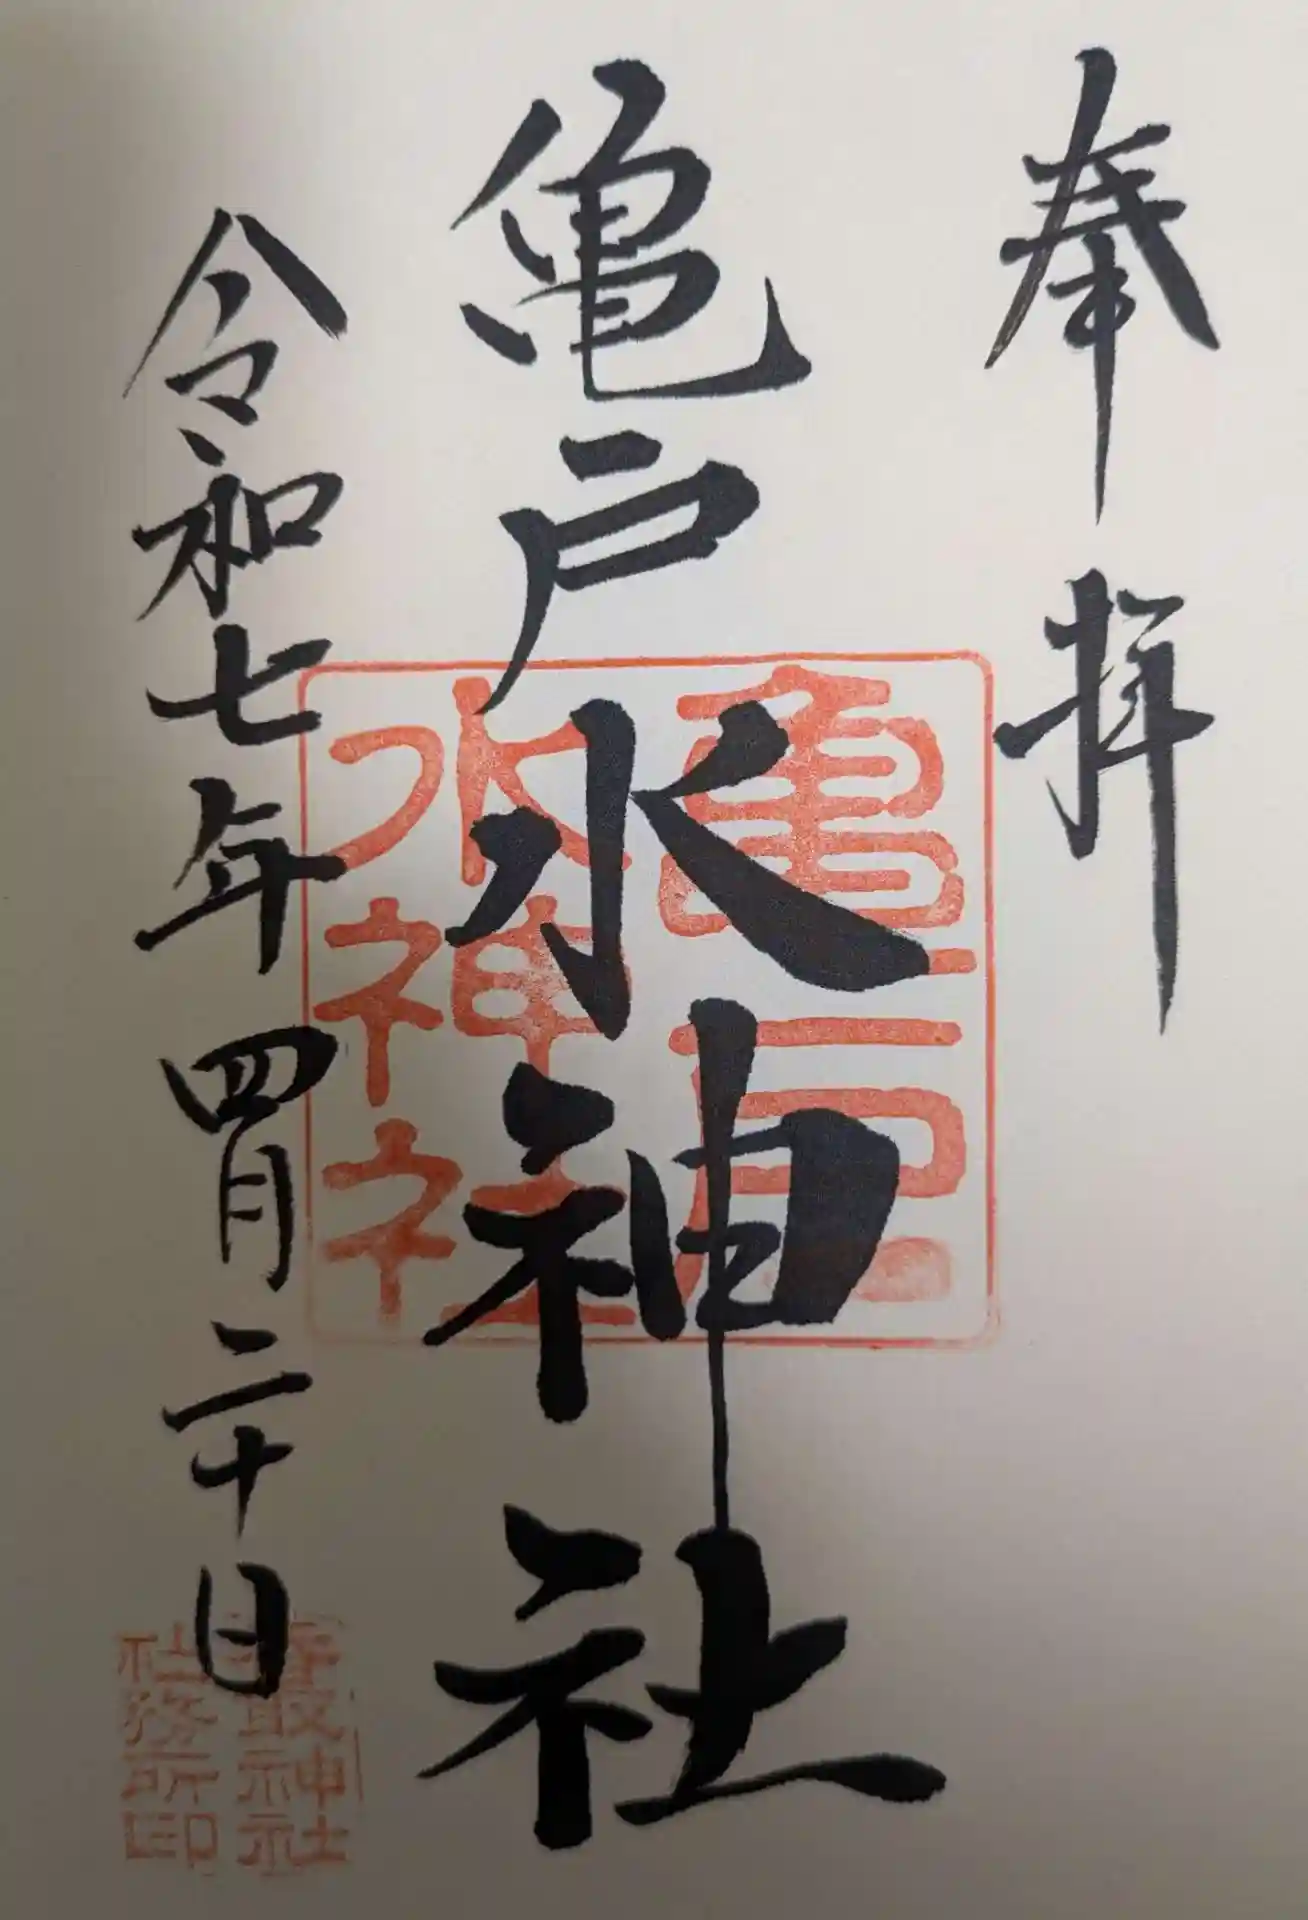 奉拝
亀戸水神社
令和七年四月二十日
亀戸
水神社
神社
社務所印